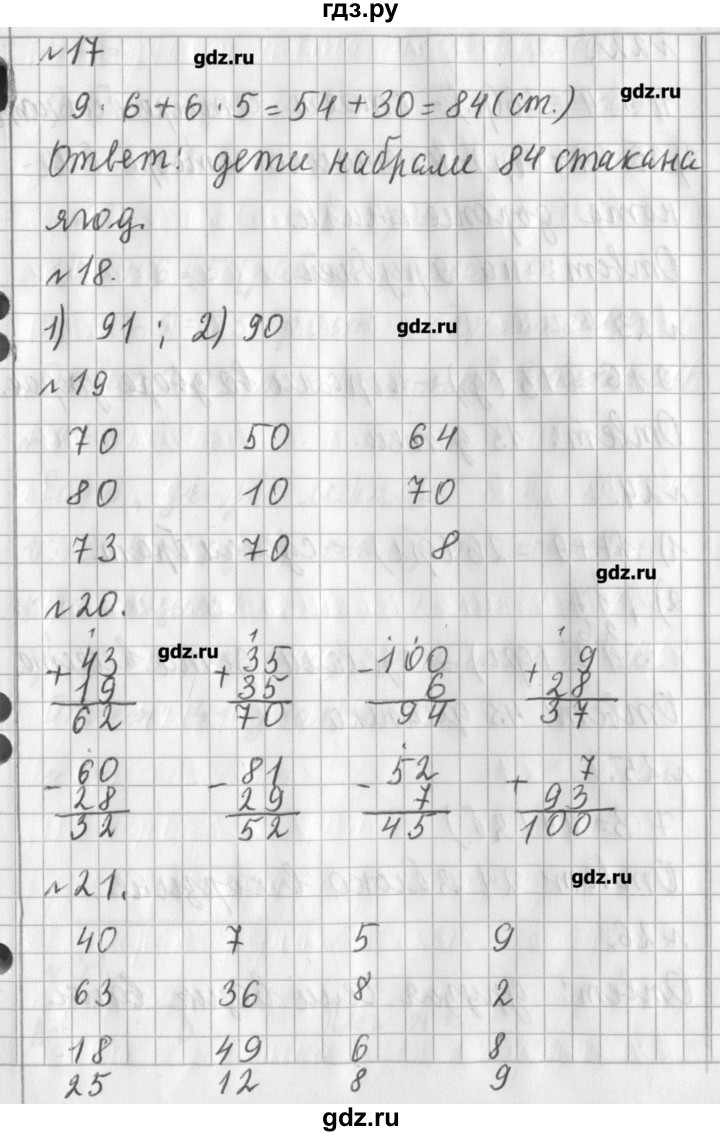 гдз.ру
№17
gdz.ru
9 · 6 + 6 · 5 = 54 + 30 = 84 (ст.)
gdz.ru
Ответ: дети набрали 84 стакана
ягод.
№18.
1) 91 ; 2) 90
gdz.ru
№19
70 50 64
80 10 70
73 70 8
gdz.ru
№20.
gdz.ru
+ 43 + 35 - 100 + 9
19 35 6 28
62 70 94 37
- 60 - 81 - 52 + 7
28 29 7 93
32 52 45 100
№21.
gdz.ru
40 7 5 9
63 36 8 2
18 49 6 8
25 12 8 9
gdz.ru